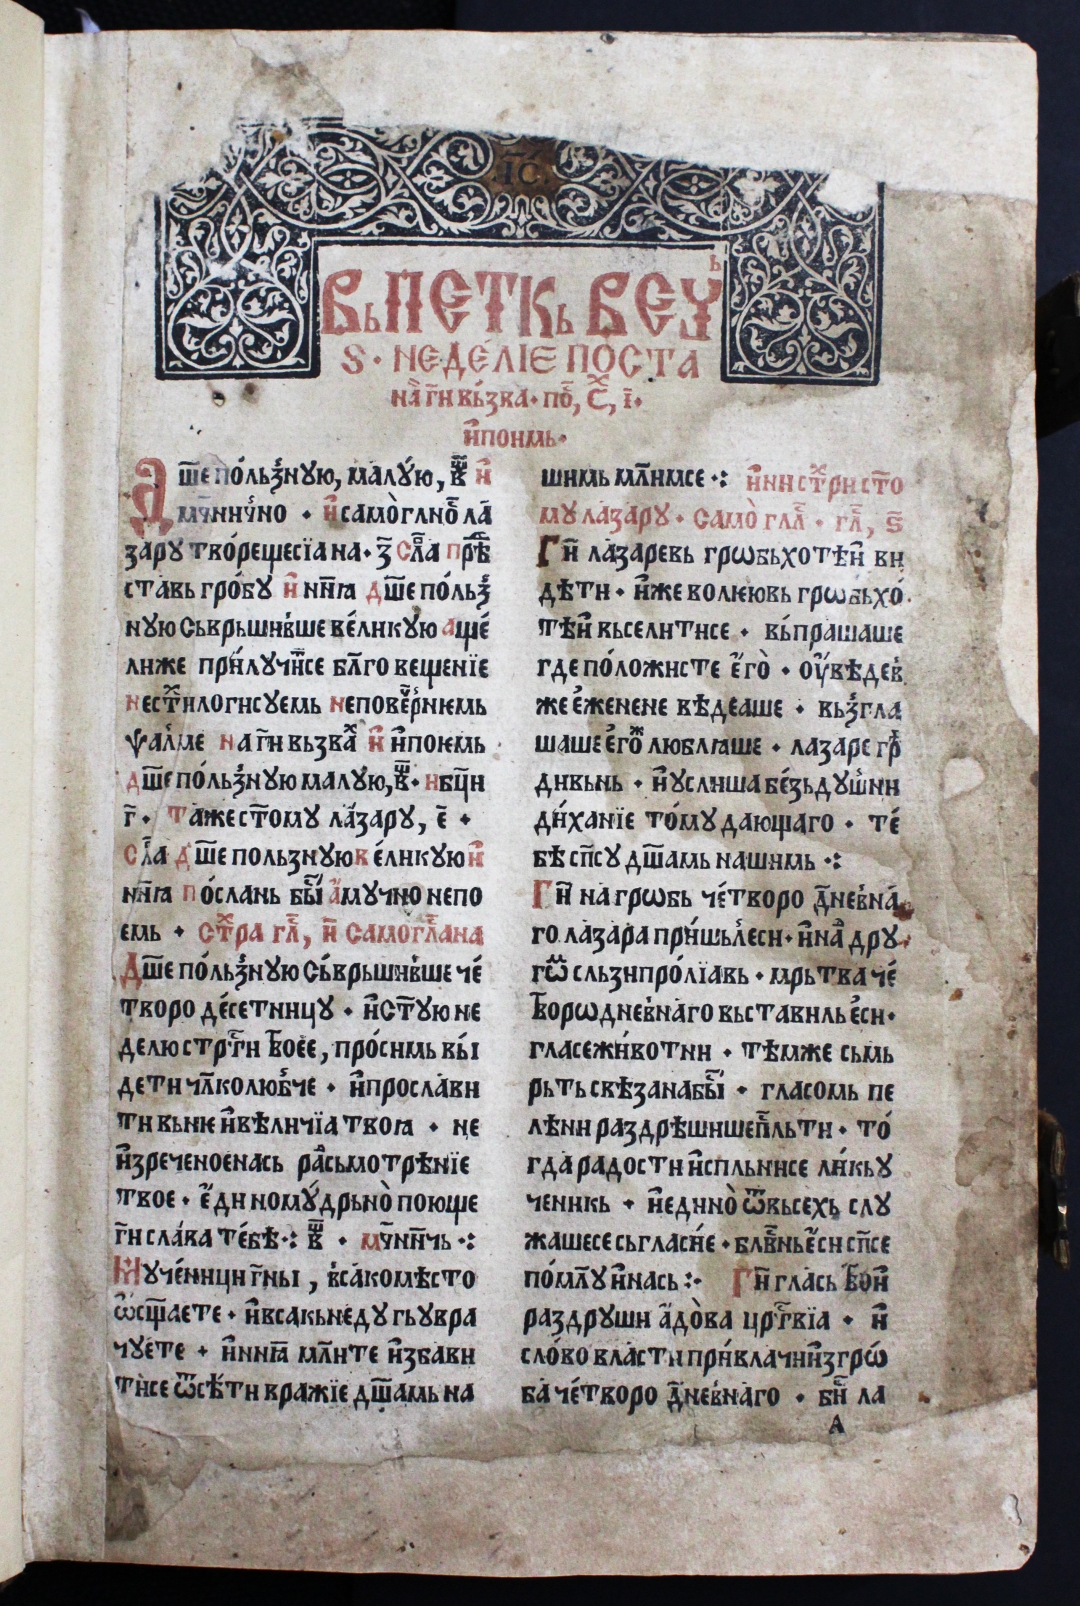 І҃С
Вь ПЕТКь ВЕЧ҇ь
Ѕ· НЕДЕ́ЛІЕ ПО̀СТА
на̀ г҃и вь́зва· по҇, с҃х, і҃·
и҆ поимь·
Дш҃е по́льꙁную, малу́ю, в҃ и҆
мч҃нич́но · и҆ само̀глно҇ ла́
зару тво́рещесїа на· з҃ Сла҇ прѣ҇
ставь гро́бу и҆ нн҃ꙗ дш҃е по́льꙁ
ную Сьврьшив̾ше ве́ликую аще́
лиже при́лучи҇се бл҃го вещенїе
нестх҃илогисуемь неповер́ниемь
ѱал́ме на г҃и вьзвах҇ и҆ и҆поиемь
дш҃е по́льꙁную малую, в҃· и бц҃и
г҃· Таже ст҃ому ла́зару, е҃ ·
сла҇ дш҃е пользную ве́ликую и҆
нн҃ꙗ по́слань бы҇ а҆мучно непо
емь · стх҃ра гл҇, и҃ самогл҇ана
Дш҃е по́льꙁную Сьв́рьшив̾ше че́
творо де́сетницу · и҆ст҃ую не
делю стр҇ти твоеѐ, про́симь вы́
дети чл҃колюб̾че · и҆прослави
ти вьние и҆вѣличїа твоꙗ · не
и҆зреченоенась рас́ьмотрѣнїе
твое · е҆дином́удрьно̀ поюще
г҃и слава те́бѣ·: в҃ · мч҃ничь ·:
Муче́ници г҇ни, в̾сакомѣсто
ѡ҆сщ҃аете · и҆всакьне́дугь увра
чуе́те · и҆ нн҃ꙗ мл҃ите и҆збави
тисе ѿ сѣ́ти вражїе дш҃амь на
шимь мл҃имсе ·: и҆ни стх҃ри ст҃о
му лазару · само̀ глл҇ · гл҇, ѕ҃
Г҃и лазаревь грѡбьхотѣи҆ ви
дѣти · и҆же волиеювь грѡбьхо́
тѣи҆ вьселитисе · вь́прашаше
где по́ложисте е҆го̀ · оу҆вѣдев̾
же е҆женене вѣдеаше · вьꙁ́гла
шаше е҆го́ж люблꙗше · лазаре гр҇
дивьнь · и҆услиша бе́зьдуш́ни
ди́ханїе то́му дающаго · те́
бѣ сп҃су дш҃амь нашимь ·:
Г҃и на грѡбь че́творо дн҃ев̾на́
го лаза́ра при́шьл́еси · и҆ на҇ дру
гѡ҇ сльзи про́лїавь · мрьтва че́
творѡдневн́аго вьставиль е҆си·
гласежи́вотни · тѣмже сьмь
рьть свѣзанабы҇ · гласомь пе
лѣни раздрѣшишеп҇льти · то́
гда радости и҆спльнисе ли́кьу
ченикь · и҆едино̀ ѿвьсехь слу
жашесе сьгласи́е · блв҃нье҆си сп҃се
по́мл҃у и҆нась :· Г҃и глась твои҆
раздруши а҆до̀ва цр҇твїа · и҆
сло́во власти при́влачии҆згрѡ́
ба че́творо дн҃ев̾наго · би҇ ла
А